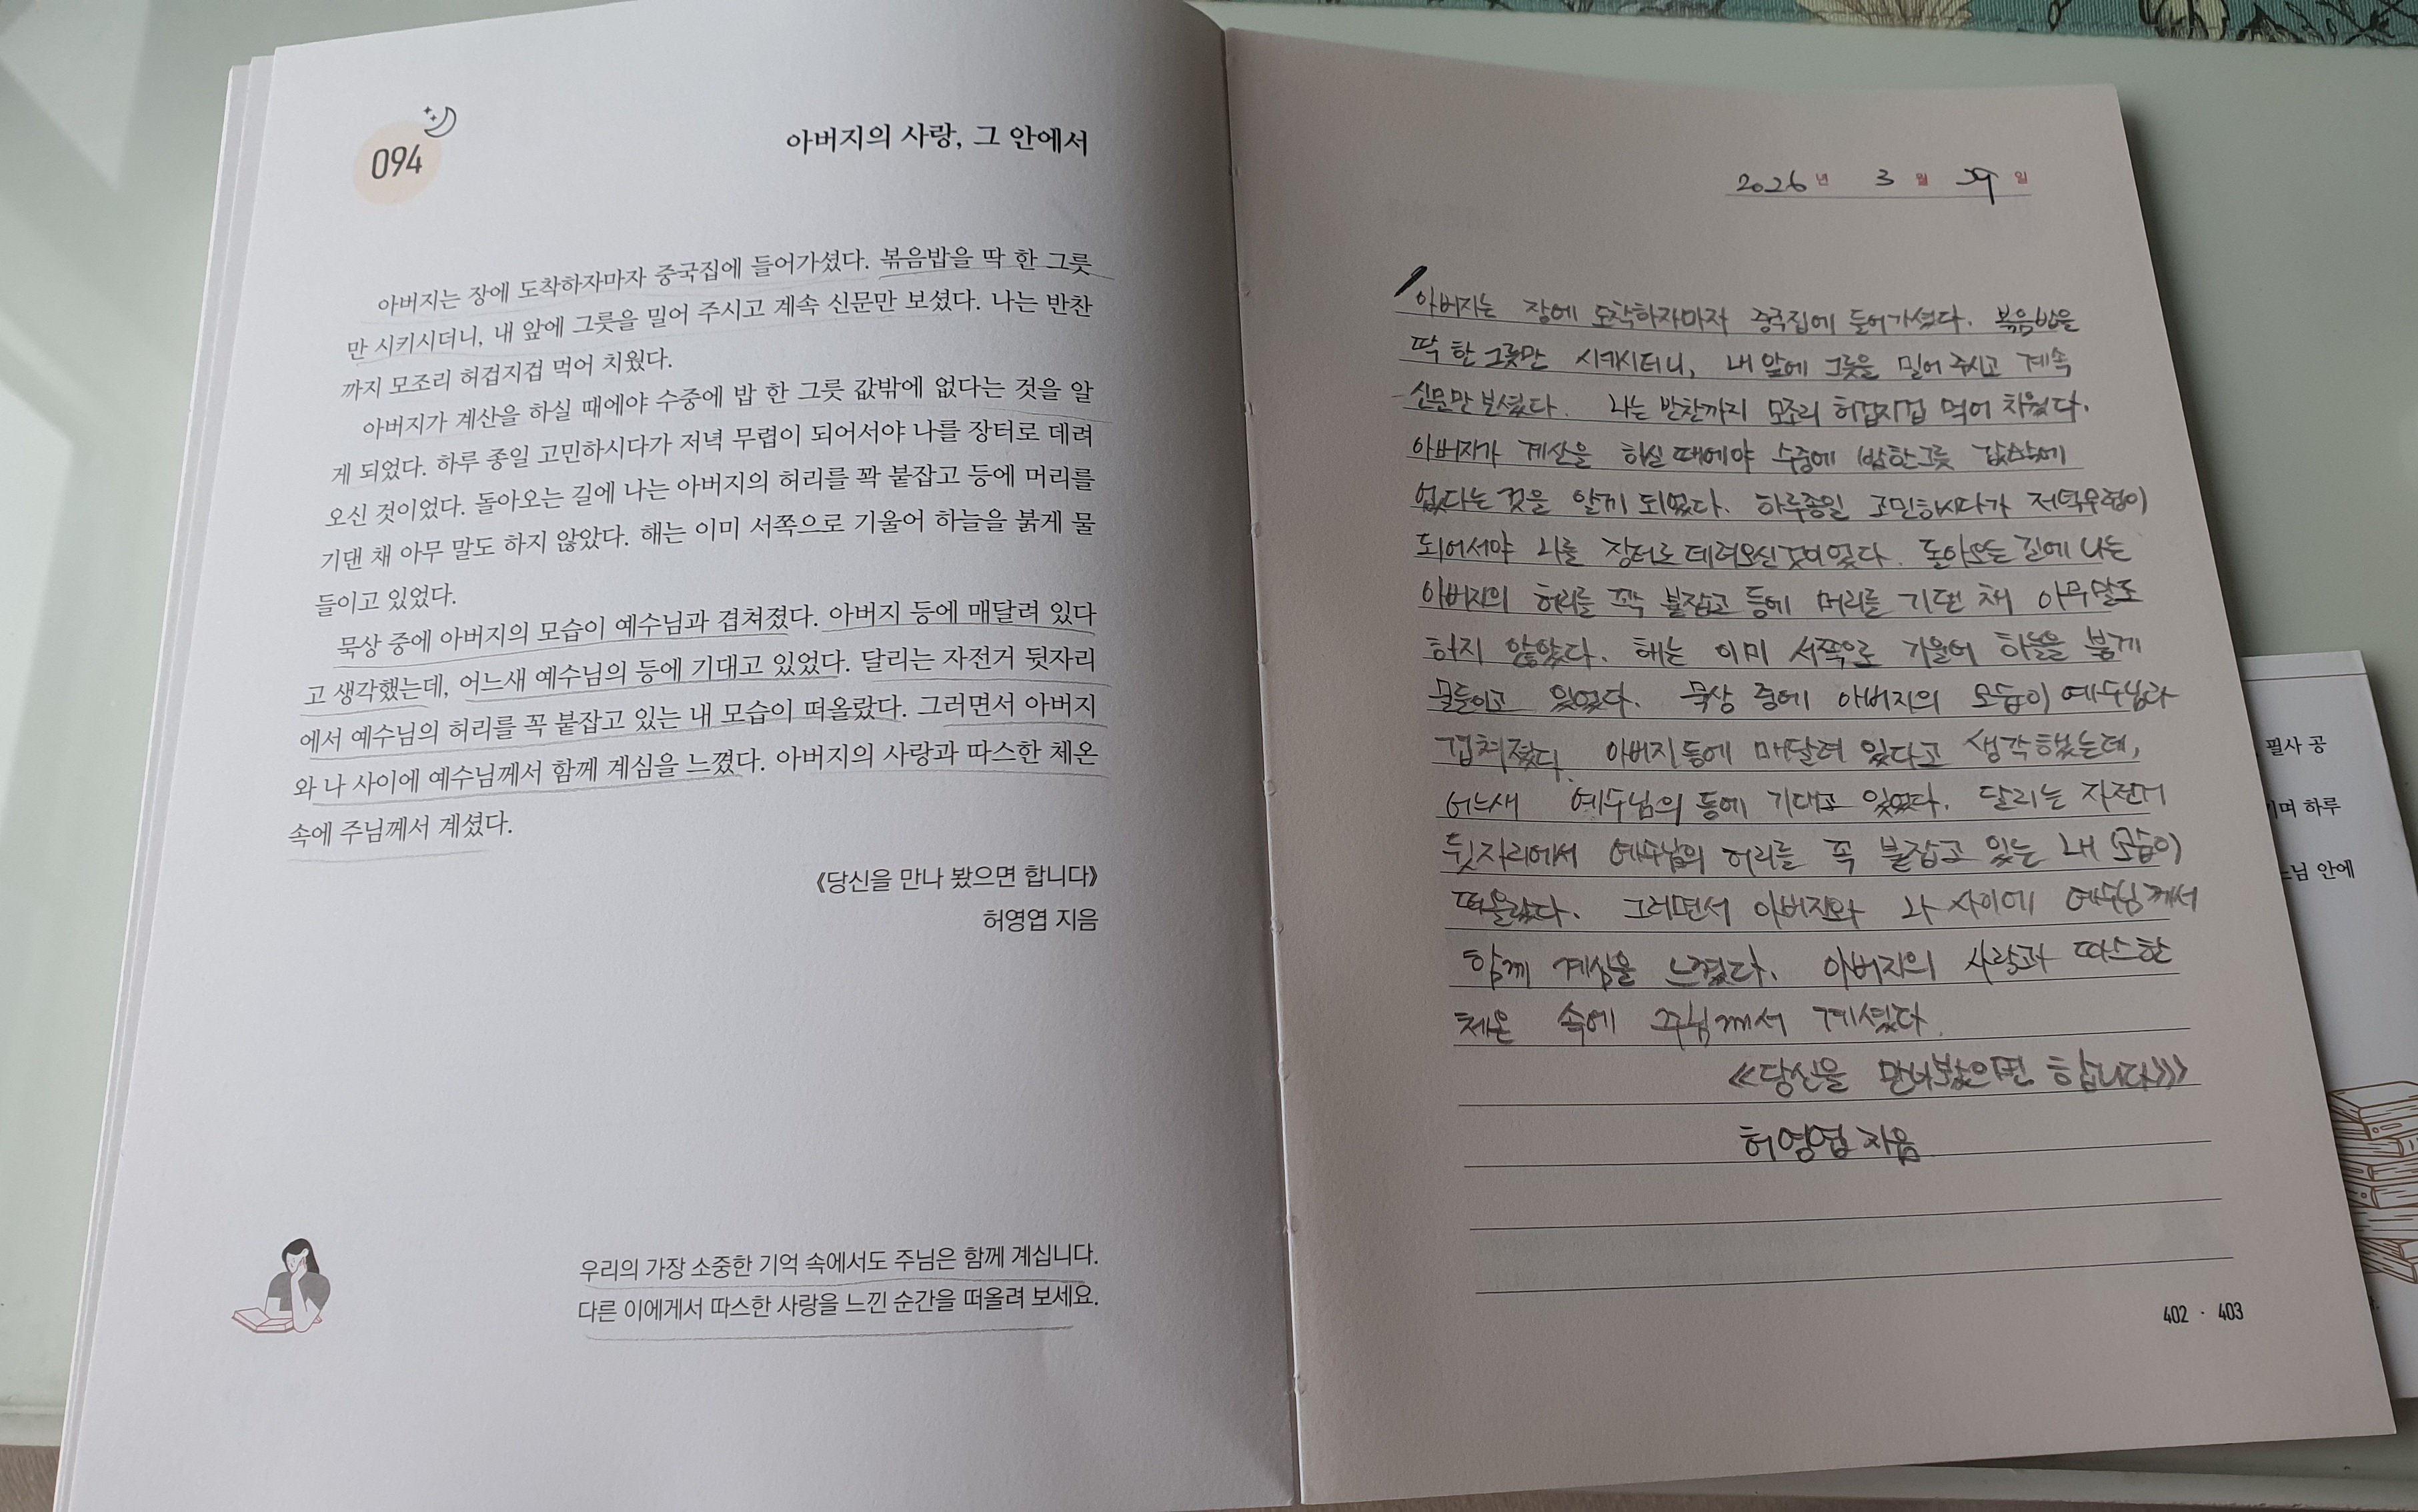 094
아버지의 사랑, 그 안에서
아버지는 장에 도착하자마자 중국집에 들어가셨다. 볶음밥을 딱 한 그릇
만 시키시더니, 내 앞에 그릇을 밀어 주시고 계속 신문만 보셨다. 나는 반찬
까지 모조리 허겁지겁 먹어 치웠다.
아버지가 계산을 하실 때에야 수중에 밥 한 그릇 값밖에 없다는 것을 알
게 되었다. 하루 종일 고민하시다가 저녁 무렵이 되어서야 나를 장터로 데려
오신 것이었다. 돌아오는 길에 나는 아버지의 허리를 꽉 붙잡고 등에 머리를
기댄 채 아무 말도 하지 않았다. 해는 이미 서쪽으로 기울어 하늘을 붉게 물
들이고 있었다.
묵상 중에 아버지의 모습이 예수님과 겹쳐졌다. 아버지 등에 매달려 있다
고 생각했는데, 어느새 예수님의 등에 기대고 있었다. 달리는 자전거 뒷자리
에서 예수님의 허리를 꼭 붙잡고 있는 내 모습이 떠올랐다. 그러면서 아버지
와 나 사이에 예수님께서 함께 계심을 느꼈다. 아버지의 사랑과 따스한 체온
속에 주님께서 계셨다.
《당신을 만나 봤으면 합니다》
허영엽 지음
우리의 가장 소중한 기억 속에서도 주님은 함께 계십니다.
다른 이에게서 따스한 사랑을 느낀 순간을 떠올려 보세요.
2026년 3월 29일
아버지는 장에 도착하자마자 중국집에 들어가셨다. 볶음밥을
딱 한 그릇만 시키시더니, 내 앞에 그릇을 밀어 주시고 계속
신문만 보셨다. 나는 반찬까지 모조리 허겁지겁 먹어 치웠다.
아버지가 계산을 하실 때에야 수중에 밥한그릇 값밖에
없다는 것을 알게 되었다. 하루종일 고민하시다가 저녁무렵이
되어서야 나를 장터로 데려오신것이었다. 돌아오는 길에 나는
아버지의 허리를 꽉 붙잡고 등에 머리를 기댄 채 아무말도
하지 않았다. 해는 이미 서쪽으로 기울어 하늘을 붉게
물들이고 있었다. 묵상 중에 아버지의 모습이 예수님과
겹쳐졌다. 아버지등에 매달려 있다고 생각했는데,
어느새 예수님의 등에 기대고 있었다. 달리는 자전거
뒷자리에서 예수님의 허리를 꼭 붙잡고 있는 내 모습이
떠올랐다. 그러면서 아버지와 나 사이에 예수님께서
함께 계심을 느꼈다. 아버지의 사랑과 따스한
체온 속에 주님께서 계셨다.
《당신을 만나봤으면 합니다》
허영엽 지음
402 · 403
필사 공
며 하루
님 안에